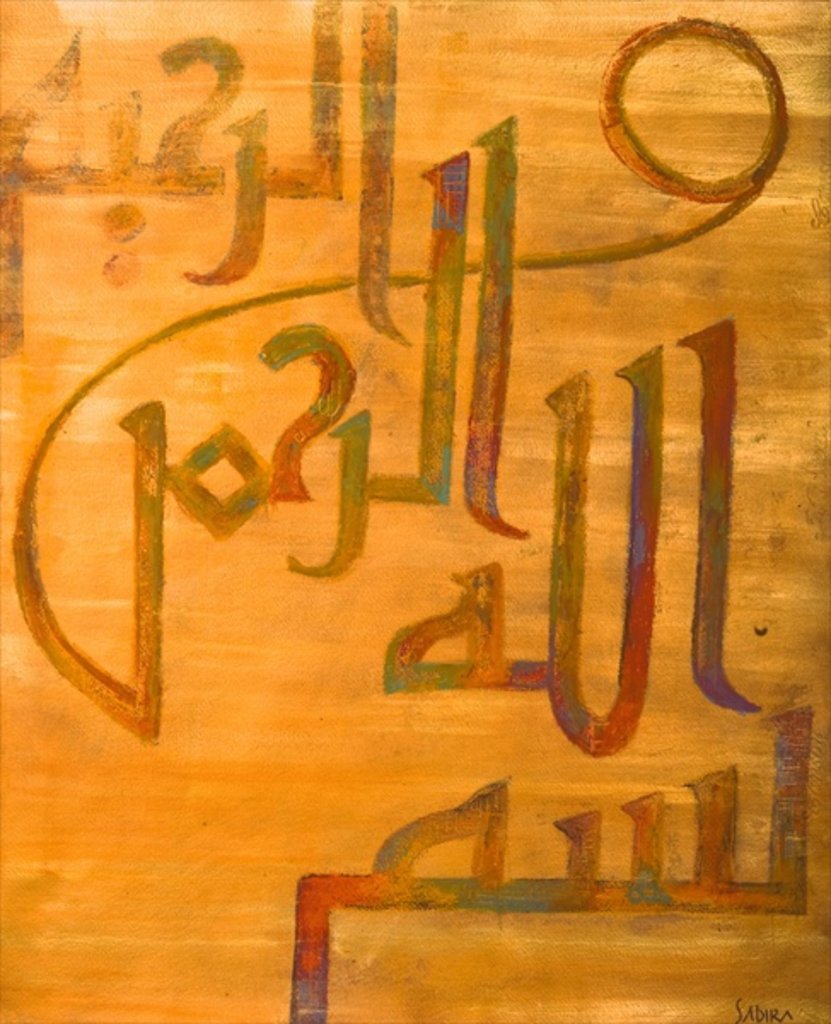 بسم
الله
الرحمن
الرحيم
SABIRA